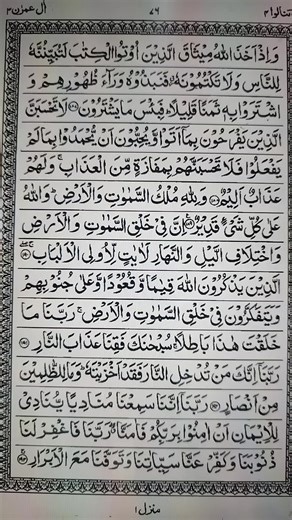 اٰل عمرٰن ٣ ٧٦ لن تنالوا ٤
وَاِذْ اَخَذَ اللّٰهُ مِيْثَاقَ الَّذِيْنَ اُوْتُوا الْكِتٰبَ لَتُبَيِّنُنَّهٗ
لِلنَّاسِ وَلَا تَكْتُمُوْنَهٗ فَنَبَذُوْهُ وَرَآءَ ظُهُوْرِهِمْ وَ
اشْتَرَوْا بِهٖ ثَمَنًا قَلِيْلًا فَبِئْسَ مَا يَشْتَرُوْنَ ۝١٨٧ لَا تَحْسَبَنَّ
الَّذِيْنَ يَفْرَحُوْنَ بِمَآ اَتَوْا وَّيُحِبُّوْنَ اَنْ يُّحْمَدُوْا بِمَا لَمْ
يَفْعَلُوْا فَلَا تَحْسَبَنَّهُمْ بِمَفَازَةٍ مِّنَ الْعَذَابِ ۚ وَلَهُمْ
عَذَابٌ اَلِيْمٌ ۝١٨٨ وَلِلّٰهِ مُلْكُ السَّمٰوٰتِ وَالْاَرْضِ ؕ وَاللّٰهُ
عَلٰى كُلِّ شَيْءٍ قَدِيْرٌ ۝١٨٩ اِنَّ فِيْ خَلْقِ السَّمٰوٰتِ وَالْاَرْضِ
وَاخْتِلَافِ الَّيْلِ وَالنَّهَارِ لَاٰيٰتٍ لِّاُولِي الْاَلْبَابِ ۝١٩٠
الَّذِيْنَ يَذْكُرُوْنَ اللّٰهَ قِيٰمًا وَّقُعُوْدًا وَّعَلٰى جُنُوْبِهِمْ
وَيَتَفَكَّرُوْنَ فِيْ خَلْقِ السَّمٰوٰتِ وَالْاَرْضِ ۚ رَبَّنَا مَا
خَلَقْتَ هٰذَا بَاطِلًا ۚ سُبْحٰنَكَ فَقِنَا عَذَابَ النَّارِ ۝١٩١
رَبَّنَآ اِنَّكَ مَنْ تُدْخِلِ النَّارَ فَقَدْ اَخْزَيْتَهٗ ؕ وَمَا لِلظّٰلِمِيْنَ
مِنْ اَنْصَارٍ ۝١٩٢ رَبَّنَآ اِنَّنَا سَمِعْنَا مُنَادِيًا يُّنَادِيْ
لِلْاِيْمَانِ اَنْ اٰمِنُوْا بِرَبِّكُمْ فَاٰمَنَّا ۖ رَبَّنَا فَاغْفِرْ لَنَا
ذُنُوْبَنَا وَكَفِّرْ عَنَّا سَيِّاٰتِنَا وَتَوَفَّنَا مَعَ الْاَبْرَارِ ۝١٩٣
منزل ١